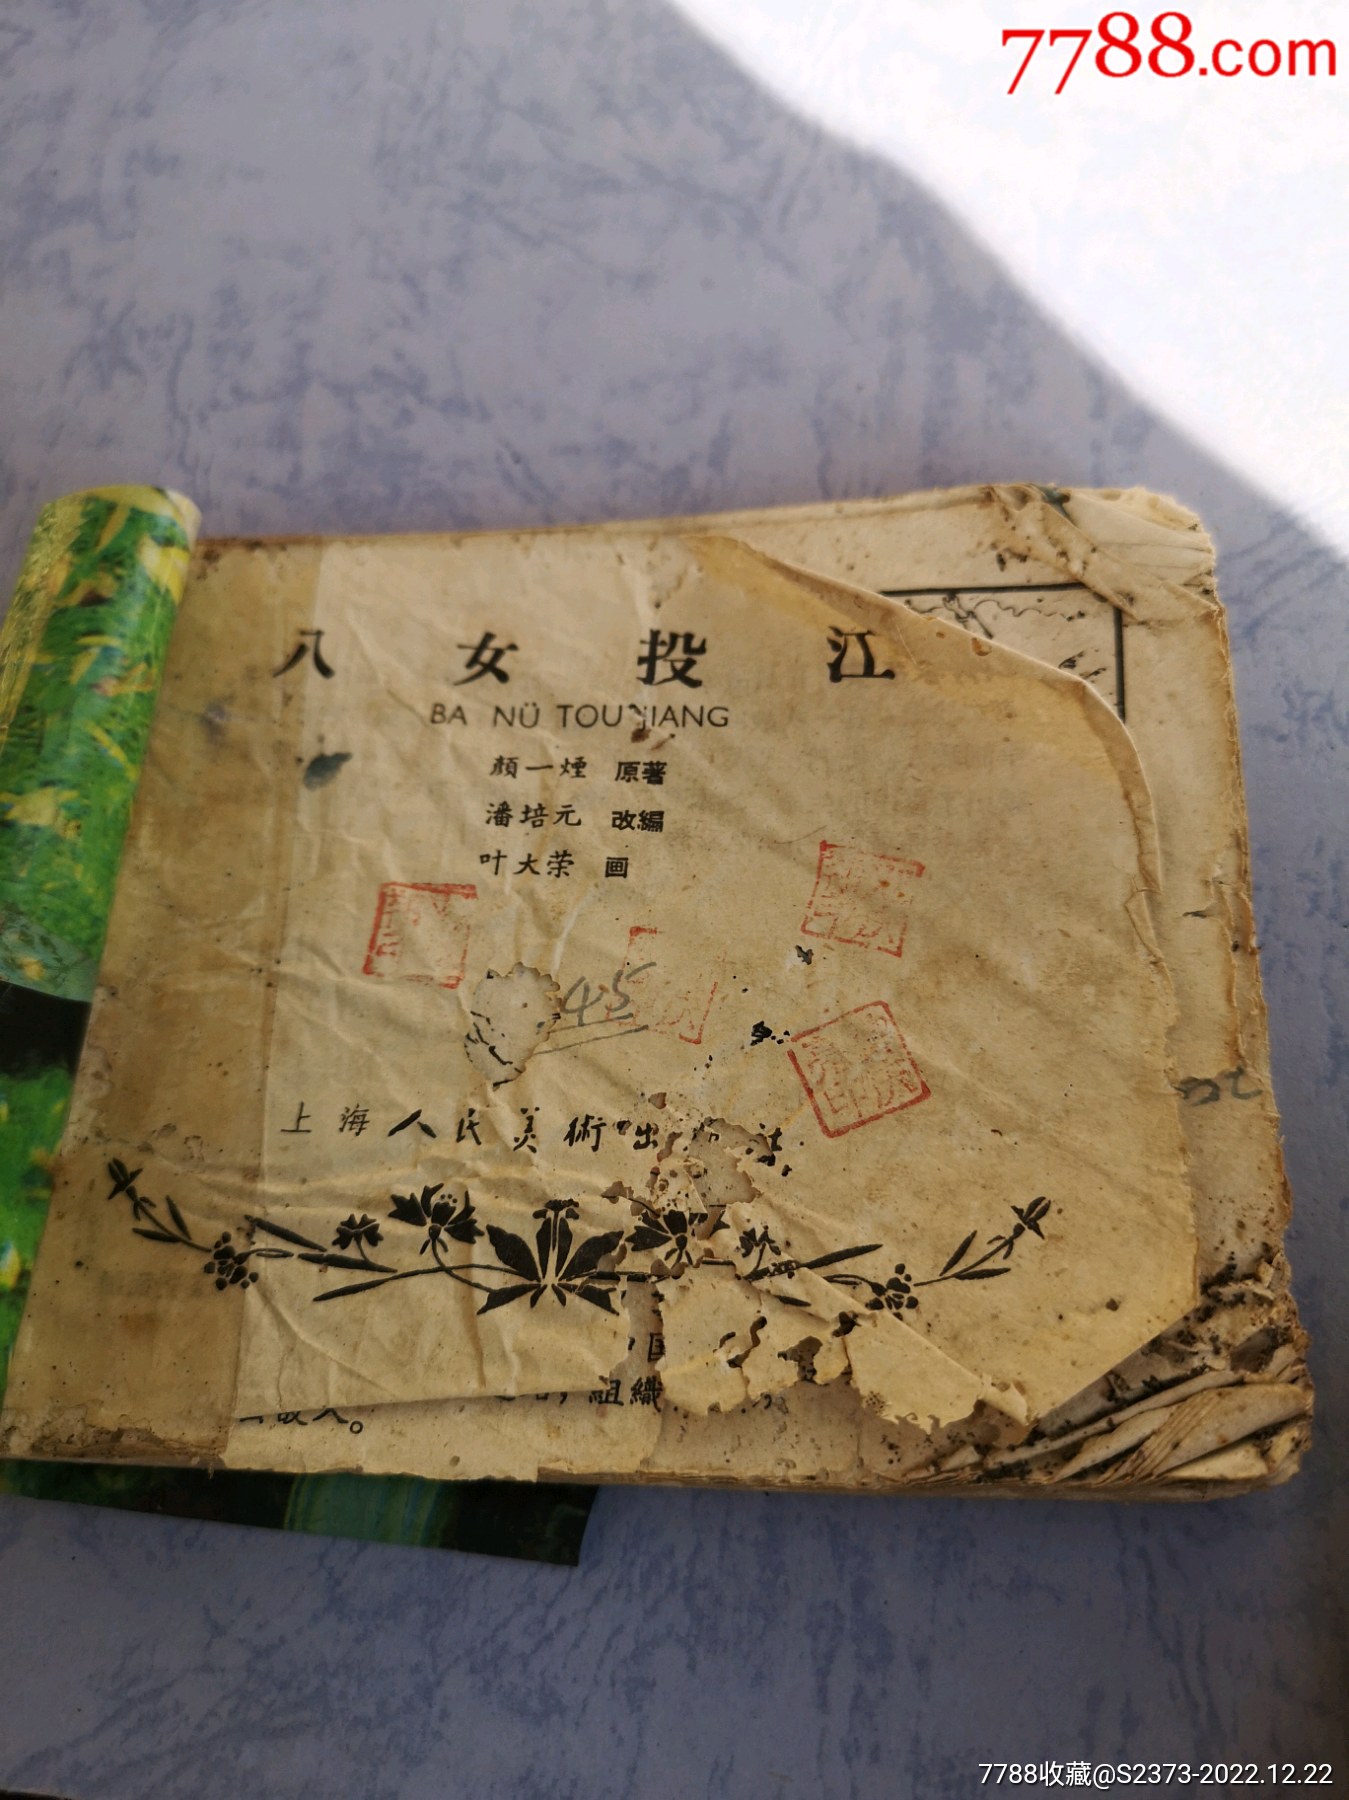 7788.com
八女投江
BA NÜ TOUJIANG
顏一煙 原著
潘培元 改編
叶大荣 画
45
上海人民美術出
組織
7788收藏@S2373-2022.12.22